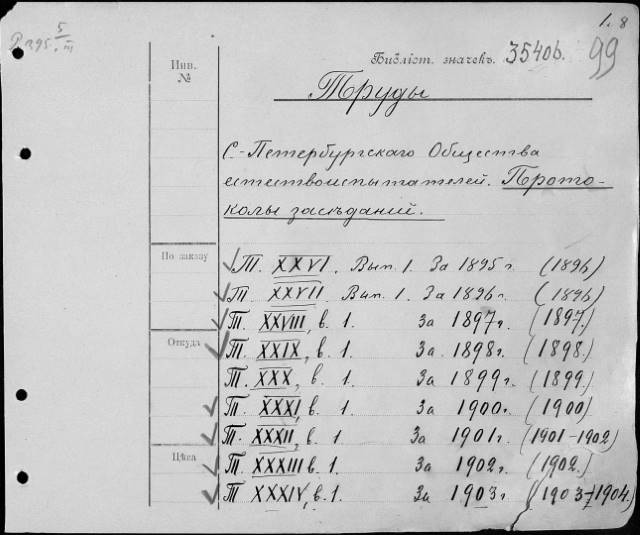 1.8
Р 395 5/III
Инв.
№
Библіот. значекъ. 35406.
99
Труды
С.-Петербургскаго Общества
естествоиспытателей. Прото-
колы засѣданій.
По заказу
Т. XXVI. Вып. 1. За 1895 г. (1896)
Т. XXVII. Вып. 1. За 1896 г. (1896)
Т. XXVIII, в. 1. За 1897 г. (1897.)
Откуда
Т. XXIX, в. 1. За. 1898 г. (1898.)
Т. XXX, в. 1. За 1899 г. (1899.)
Т. XXXI, в. 1. За 1900 г. (1900)
Т. XXXII, в. 1. За 1901 г. (1901-1902)
Цѣна
Т. XXXIII в. 1. За 1902 г. (1902.)
Т. XXXIV, в. 1. За 1903 г. (1903-1904.)